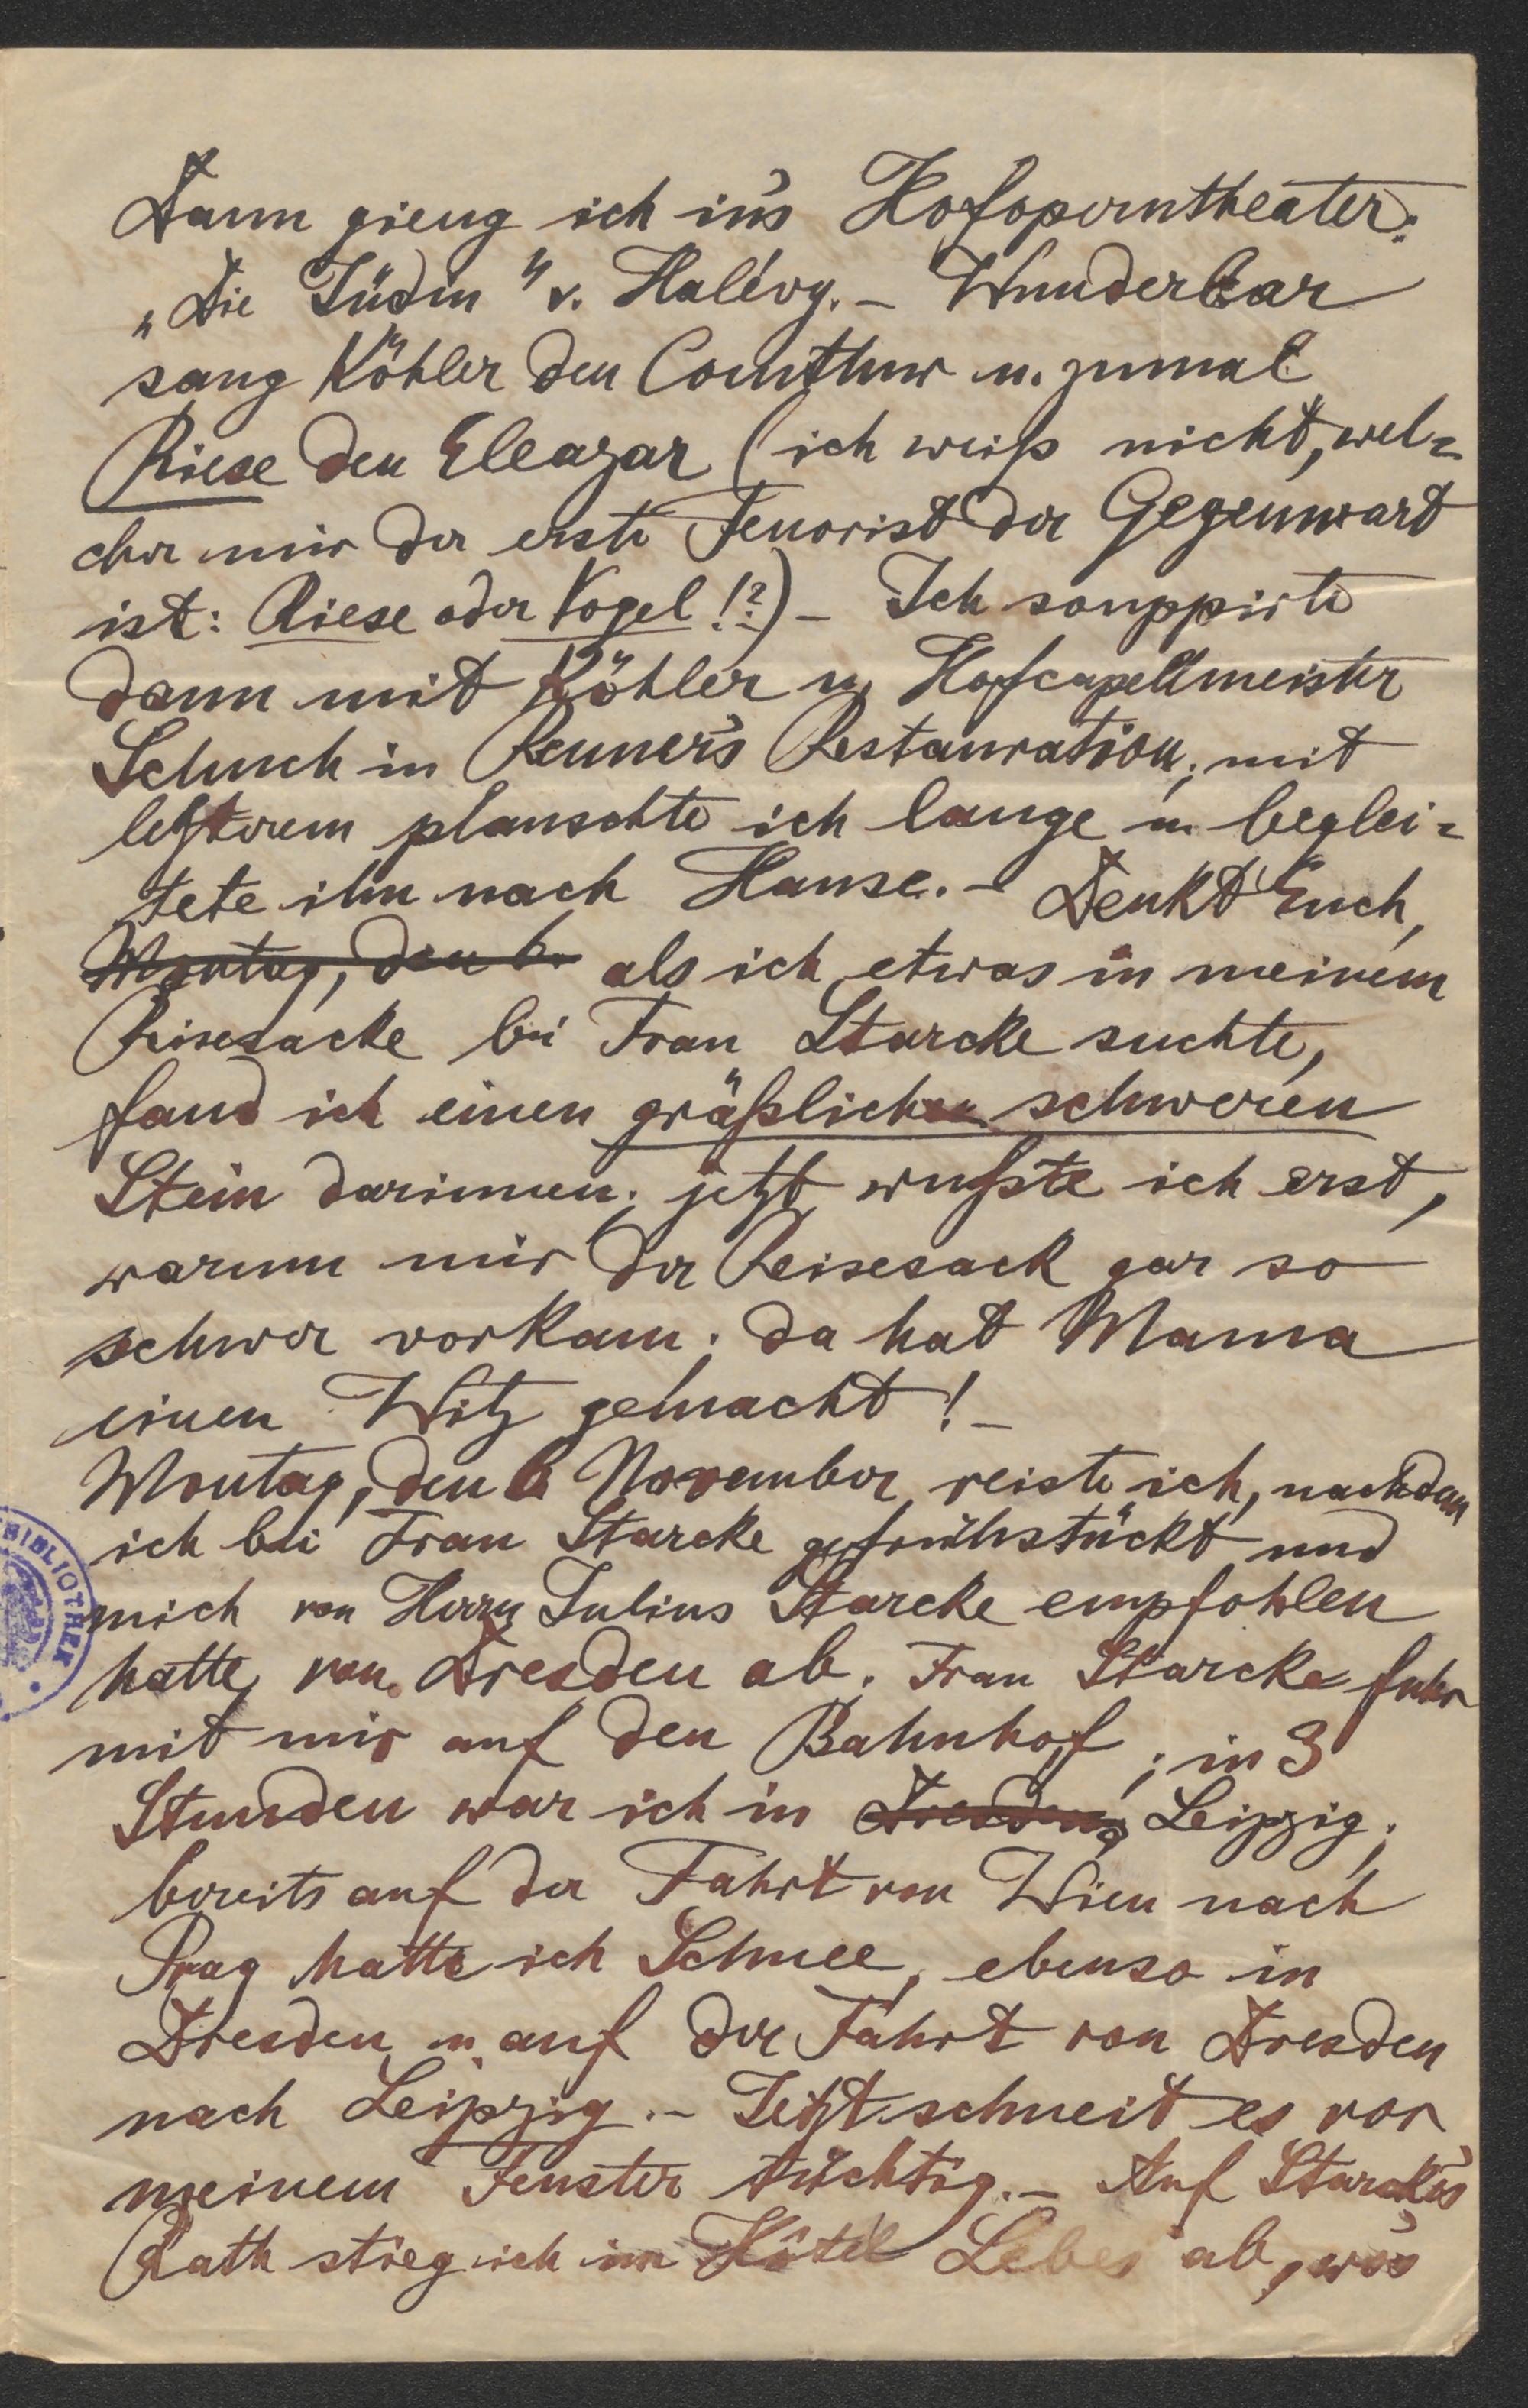 Dann gieng ich in's Hofoperntheater:
„Die Jüdin" v. Halévy. – Wunderbar
sang Köhler den Comthur u. zumal
Riese den Eleazar (ich weiß nicht, wel=
cher mir der erste Tenorist der Gegenwart
ist: Riese oder Vogel!?) – Ich souppirte
dann mit Köhler u. Hofcapellmeister
Schuch in Renner's Restauration; mit
letzterem planschte ich lange u. beglei=
tete ihn nach Hause. – Denkt Euch,
Montag, den 6. als ich etwas in meinem
Reisesacke bei Frau Starcke suchte,
fand ich einen gräßlich schweren
Stein darinnen; jetzt wußte ich erst,
warum mir der Reisesack gar so
schwer vorkam; da hat Mama
einen Witz gemacht! –
Montag, den 6 November reiste ich, nachdem
ich bei Frau Starcke gefrühstückt und
mich von Herrn Julius Starcke empfohlen
hatte, von Dresden ab. Frau Starcke fuhr
mit mir auf den Bahnhof; in 3
Stunden war ich in Dresden, Leipzig;
bereits auf der Fahrt von Wien nach
Prag hatte ich Schnee, ebenso in
Dresden u. auf der Fahrt von Dresden
nach Leipzig. – Jetzt schneit es vor
meinem Fenster tüchtig. – Auf Starcke's
Rath stieg ich im Hôtel Lebe ab, wo's
BIBLIOTHEK